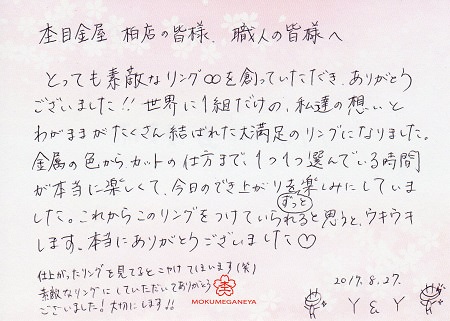 杢目金屋 柏店の皆様、職人の皆様へ
とっても素敵なリング∞を創っていただき、ありがとう
ございました!! 世界に1組だけの、私達の想いと
わがままがたくさん結ばれた大満足のリングになりました。
金属の色から、カットの仕方まで、1つ1つ選んでいる時間
が本当に楽しくて、今日のでき上がりを楽しみにしていま
した。これからこのリングをずっとつけていられると思うと、ウキウキ
します。本当にありがとうございました♡
仕上がったリングを見てるとニヤけてしまいます(笑)
素敵なリングにしていただいてありがとう
ございました!大切にします!!
MOKUMEGANEYA
2017.8.27.
Y & Y